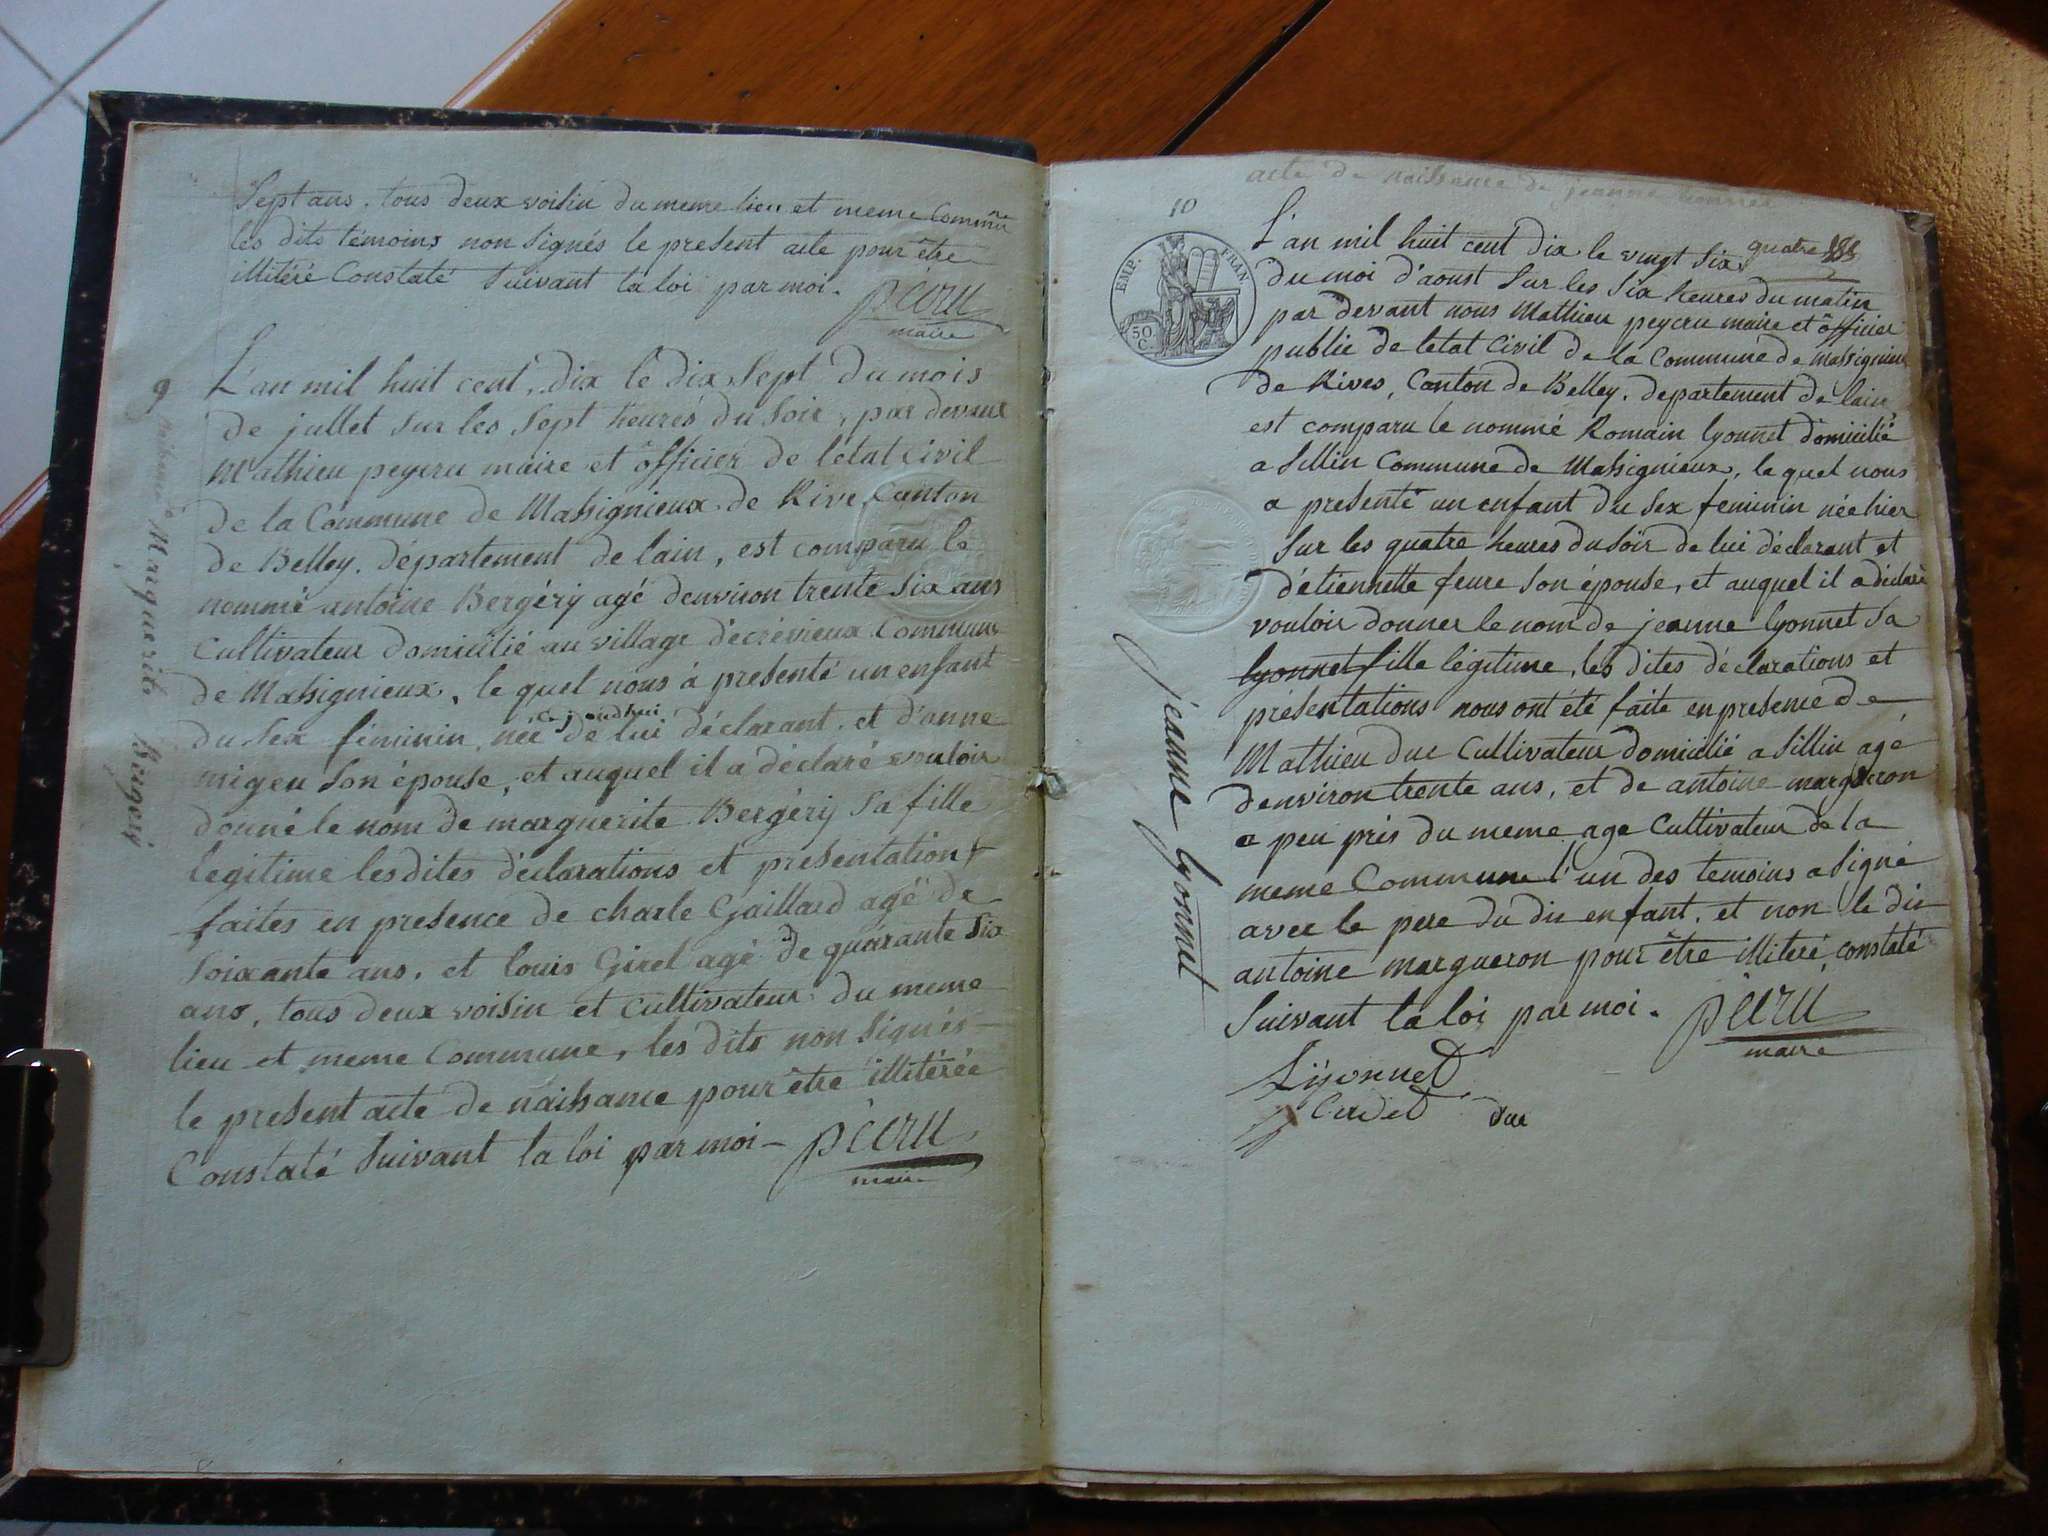 Sept ans. tous deux voisin du meme lieu et meme Commne
les dits témoins non Signés le present acte pour être
illitéré Constaté Suivant la loi par moi.
pècru
maire
9
naissance de Marguerite Bergery
L'an mil huit cent, dix le dix Sept du mois
de jullet Sur les Sept heures du Soir, par devant
Mathieu peycru maire et ôfficier de létat Civil
de la Commune de Massignieux de Rive, Canton
de Belley. département de lain, est comparu le
nommé antoine Bergéry agé denviron trente Six ans
Cultivateur domicilié au village décrévieux Commune
de Massignieux, le quel nous à présenté un enfant
cejourdhui
du Sex féminin née de lui déclarant, et d'anne
migeu Son épouse, et auquel il a déclaré vouloir
donné le nom de marguerite Bergéry Sa fille
legitime lesdites déclarations et presentation
faites en presence de charle Gaillard agé de
Soixante ans, et louis Girel agé de quarante Six
ans, tous deux voisin et cultivateur du meme
lieu et meme Commune, les dits non Signés
le present acte de naissance pour être illitérée
Constaté Suivant la loi par moi pècru
maire
acte de naissance de jeanne lionnet
10
EMP. FRAN.
50 C.
L'an mil huit cent dix le vingt Six quatre
du moi d'aoust Sur les Six heures du matin
par devant nous Mathieu peycru maire et ôfficier
public de letat Civil de la Commune de Massignieux
de Rives, Canton de Belley. departement de lain
est comparu le nommé Romain lyonnet domicilié
a Sillin Commune de Massignieux, le quel nous
a presenté un enfant du Sex feminin née hier
Sur les quatre heures du Soir de lui déclarant et
détiennette feure Son épouse, et auquel il a déclaré
vouloir donner le nom de jeanne lyonnet Sa
lyonnet fille légitime, les dites déclarations et
présentations nous ont été faite en presence de
Mathieu duc Cultivateur domicilié a Sillin agé
denviron trente ans, et de antoine margueron
a peu prés du meme age Cultivateur de la
meme Commune l'un des temoins a Signé
avec le pere du dit enfant, et non le dit
antoine margueron pour être illiteré, constaté
Suivant la loi par moi. pècru
maire
jeanne lyonnet
Liyonnet
duc